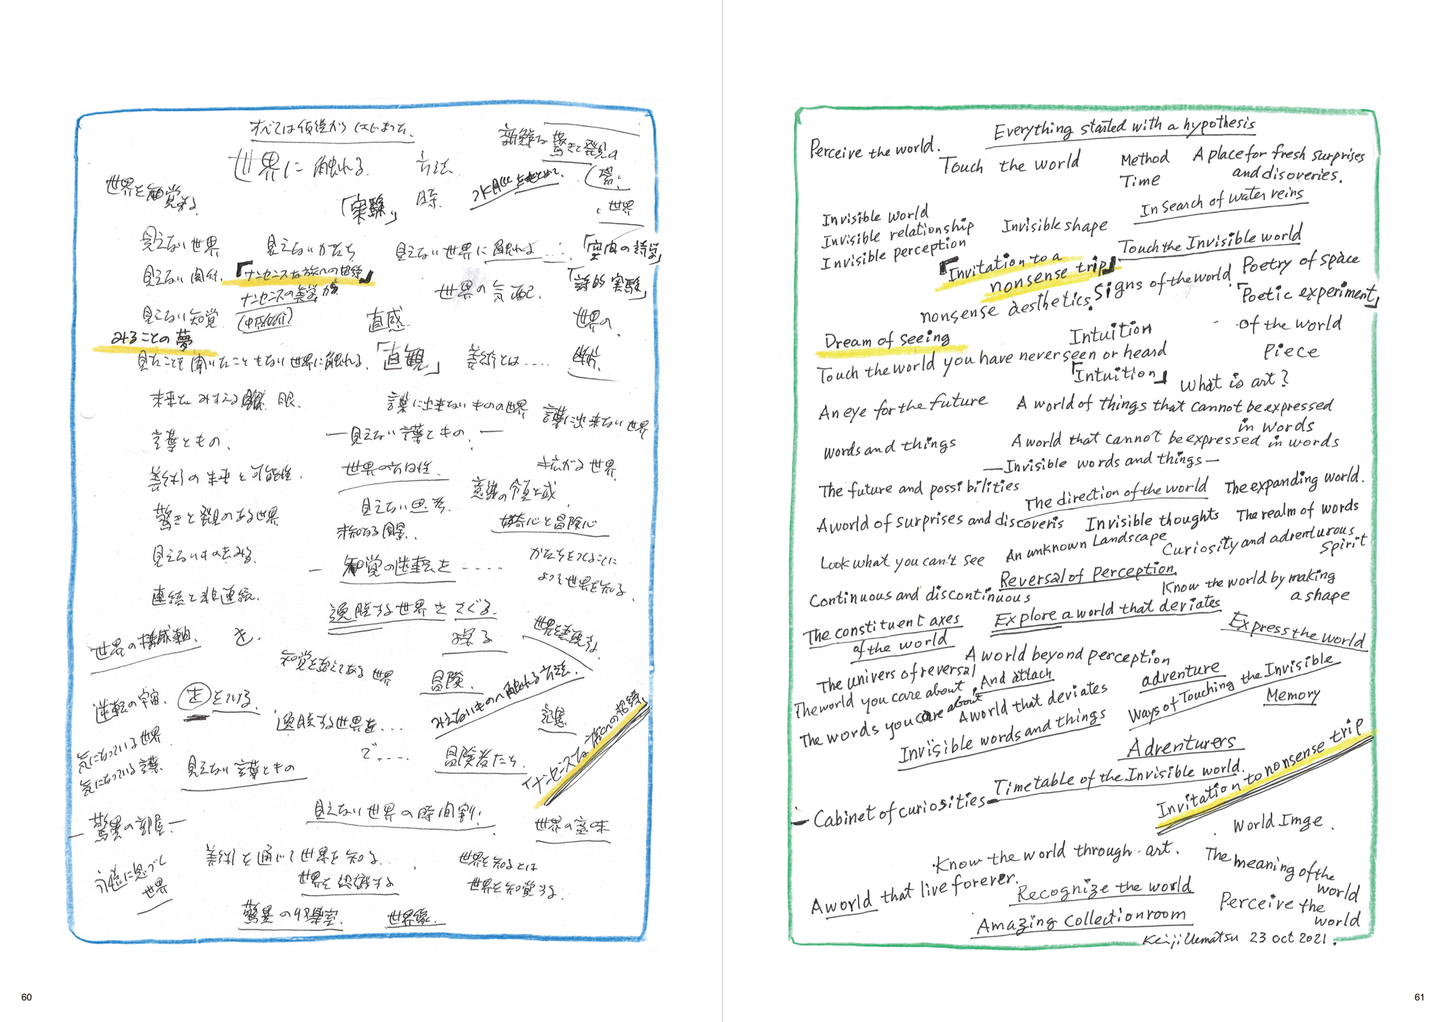 すべては仮説からはじまった。
世界に触れる 方法
世界を知覚する
「実験」 時
水脈
新鮮な驚きと発見の
場
世界
見えない世界 見えないかたち 見えない世界に触れる....
「空間の詩学」
見えない関係 「ナンセンスな旅への招待」
「詩的実験」
ナンセンスの美学
世界の気配
見えない知覚 直感 世界の
みることの夢
見たことも聞いたこともない世界に触れる 「直観」 美術とは.... 断片
未来を 眼 言葉に出来ないものの世界
言葉に出来ない世界
言葉ともの ー見えない言葉ともの。ー
美術の未来と可能性 世界の方向性 広がる世界
言葉の領域
驚きと発見のある世界 見えない思考
未知なる風景 好奇心と冒険心
見えないものをみる
知覚の逆転を.....
かたちをつくることに
よって世界を知る
連続と非連続
逸脱する世界をさぐる
世界の構成軸 を. 探る
世界を表現する
知覚を超えてある世界 冒険
みえないものへ触れる方法
逆転の宇宙 をつける
逸脱する世界を... 記憶
気になっている世界
気になっている言葉 見えない言葉ともの で.... 冒険者たち
ナンセンスな旅への招待
見えない世界の時間割
ー驚異の部屋ー 世界の意味
美術を通じて世界を知る... 世界を知るとは
世界を認識する 世界を知覚する
永遠に息づく
世界
驚異の収集室 世界像
60
Everything started with a hypothesis
Perceive the world.
Touch the world Method
Time
A place for fresh surprises
and disoveries.
In Search of water reins
Invisible world
Invisible relationship
Invisible perception
Invisible shape
Touch the Invisible world
「Invitation to a
nonsense trip」
nonsense aesthetics.
Signs of the world
Poetry of space
「Poetic experiment」
Dream of seeing
Intuition
of the world
Touch the world you have never seen or heard
Piece
「Intuition」
What is art?
An eye for the future
A world of things that cannot be expressed
in words
words and things
A world that cannot be expressed in words
—Invisible words and things—
The future and possibilities
The direction of the world
The expanding world.
A world of surprises and discoveris
Invisible thoughts
The realm of words
Look what you can't see
An unknown Landscape
Curiosity and adrenturous
Spirit
Reversal of Perception
Continuous and discontinuous
Know the world by making
a shape
The constituent axes
of the world
Explore a world that deviates
Express the world
A world beyond perception
The univers of reversal
And attach
adventure
The world you care about
The words you care about
A world that deviates
Ways of Touching the Invisible
Memory
Invisible words and things
Adrenturers
Timetable of the Invisible world.
Cabinet of curiosities
Invitation to nonsense trip
World Imge.
Know the world through art.
The meaning of the
world
A world that live forever.
Recognize the world
Perceive the
world
Amazing Collection room
Keiji Uematsu 23 oct 2021.
61